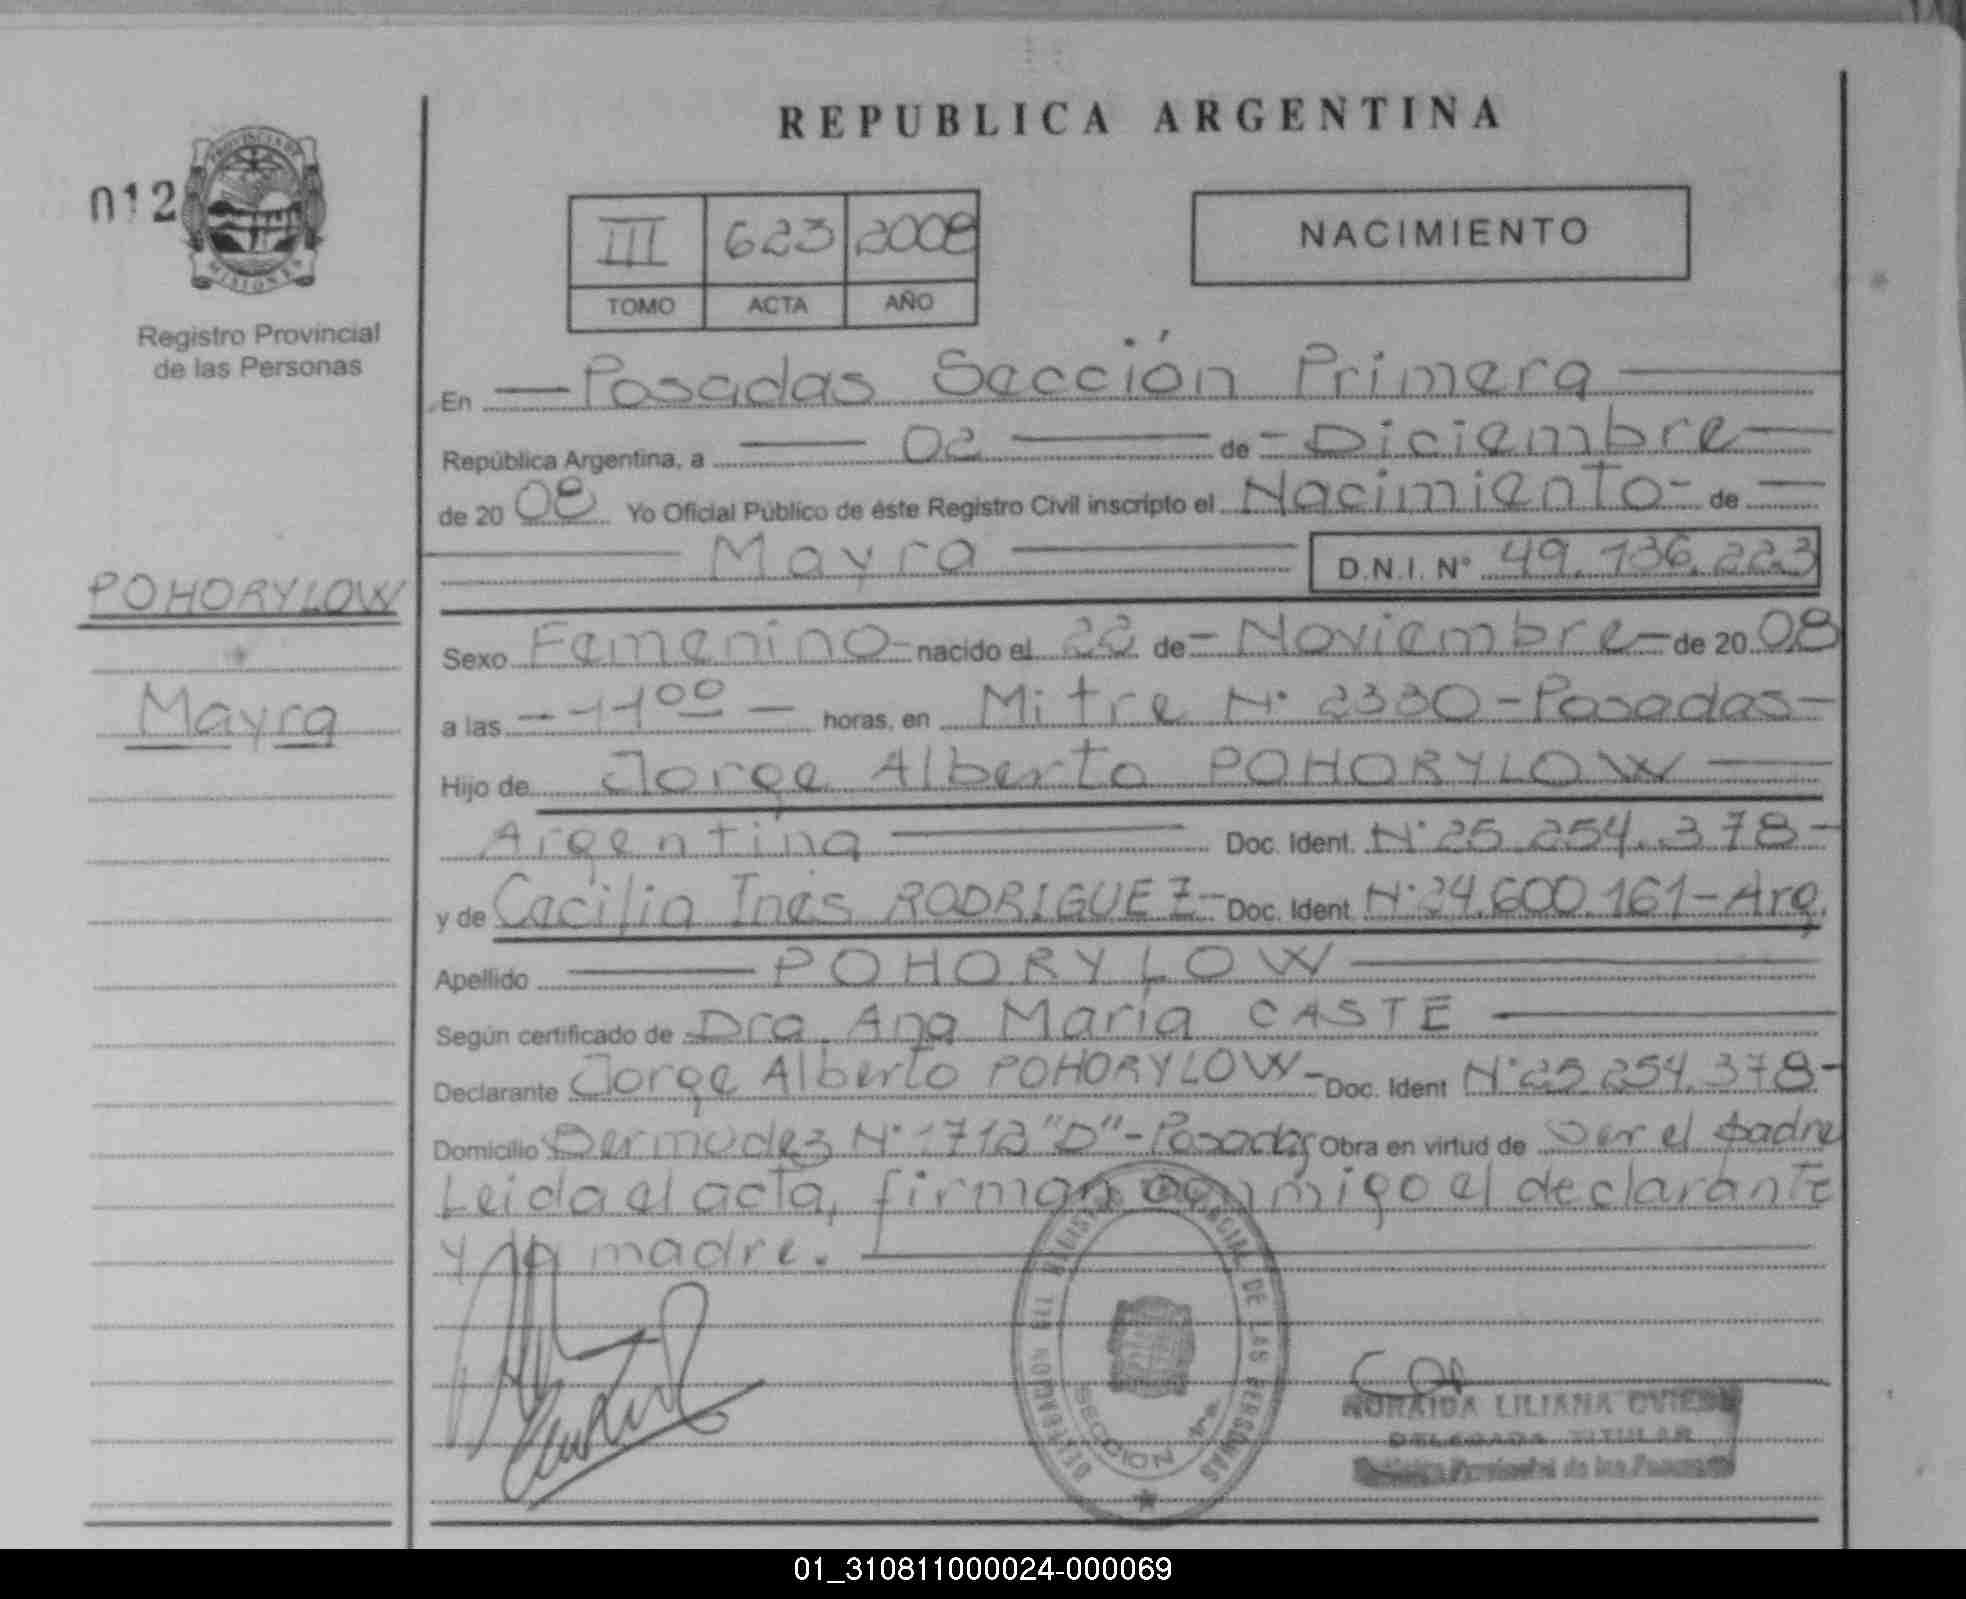 REPUBLICA ARGENTINA
012
PROVINCIA DE
MISIONES
Registro Provincial
de las Personas
III 623 2008
TOMO ACTA AÑO
NACIMIENTO
En Posadas Sección Primera
República Argentina, a 02 de Diciembre
de 2008 Yo Oficial Público de éste Registro Civil inscripto el Nacimiento de
Mayra D.N.I. N° 49.136.223
POHORYLOW
Mayra
Sexo Femenino nacido el 22 de Noviembre de 2008
a las 11 00 horas, en Mitre N° 2330 - Posadas
Hijo de Jorge Alberto POHORYLOW
Argentina Doc. Ident. N° 25.254.378
y de Cecilia Inés RODRIGUEZ Doc. Ident N° 24.600.161 - Arg.
Apellido POHORYLOW
Según certificado de Dra. Ana María CASTE
Declarante Jorge Alberto POHORYLOW Doc. Ident N° 25.254.378
Domicilio Bermudez N° 1712 "D" - Posadas Obra en virtud de ser el padre
Leida el acta, firman conmigo el declarante
y la madre.
REGISTRO PROVINCIAL DE LAS PERSONAS
SECCION 1ra.
LILIANA
DELEGADA TITULAR
Registro Provincial de las Personas
01_310811000024-000069